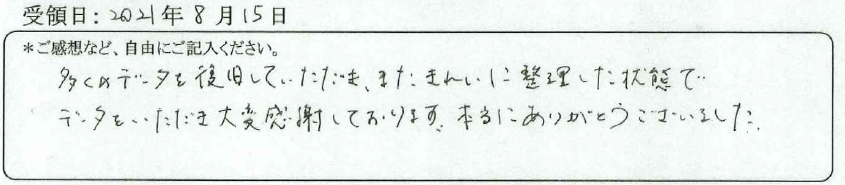 受領日: 2021年8月15日
*ご感想など、自由にご記入ください。
多くのデータを復旧していただき、またきれいに整理した状態で
データをいただき大変感謝しております。本当にありがとうございました。